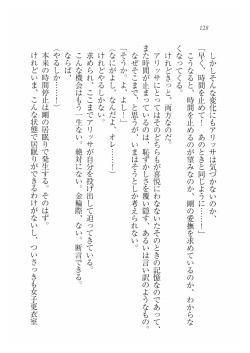 128
しかしそんな変化にもアリッサは気づかないのか、
「早く、時間を止めて！　あのときと同じように……！」
こうなると、時間を止めるのが望みなのか、剛の愛撫を求めているのか、わからな
くなってくる。
けれどきっと、両方なのだ。
アリッサにとってはそのどちらもが喜悦にもわないたそのときの記憶なのであって、
また時間が止まっているのは、恥ずかしさを覆い隠す、あるいは言い訳のようなもの。
なぜそこまで、と思うが、いまはそうとしか考えられない。
「そうか、よ、よし……！
なにがよし、なんだよ、オレ……！」
けれどやるしかない。
求められ、ここまでアリッサが自分を投げ出して迫っている。
こんな機会はもう一生ない。絶対にない。金輪際、ない。断言できる。
ならば、
やるしか……！」
本来の時間停止は剛の居眠りで発生する。そのはず。
けれどいま、こんな状態で居眠りができるわけがないし、ついさっきも女子更衣室